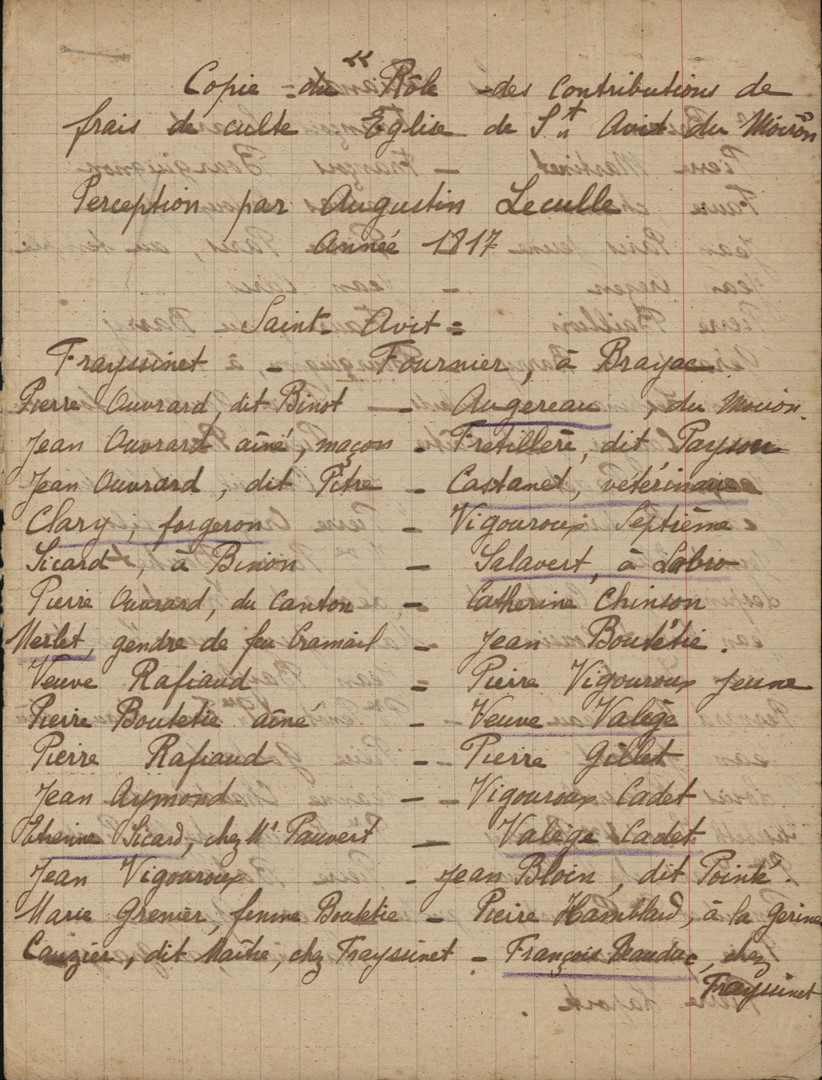 Copie du Rôle des contributions de
frais de culte Eglise de St Avit du Moiron
Perception par Augustin Leculle
Année 1817
Saint-Avit =
Frayssinet - Fournier, à Brayac
Pierre Ouvrard, dit Binot - Augereau, du Moiron.
Jean Ouvrard aîné, maçon - Fretillère, dit Payson
Jean Ouvrard, dit Pitre - Castanet, vetérinaire
Clary, forgeron - Vigouroux Septième
Sicard, à Binon - Salavert, à Labro
Pierre Ouvrard, du Canton - Catherine Chinson
Merlet, gendre de feu Cramail - Jean Boutétie.
Veuve Rafiaud = Pierre Vigouroux Jeune
Pierre Boutetie aîné - Veuve Valége
Pierre Rafiaud - - Pierre Gillet
Jean Aymond - - Vigouroux Cadet
Etienne Sicard, chez Mr Pauvert - Valége Cadet
Jean Vigouroux - Jean Bloin, dit Pointé.
Marie Grenier, femme Boutetie - Pierre Hamblard, à la Gorine
Cauzier, dit Maître, chez Frayssinet - François Nauduc, chez
Frayssinet